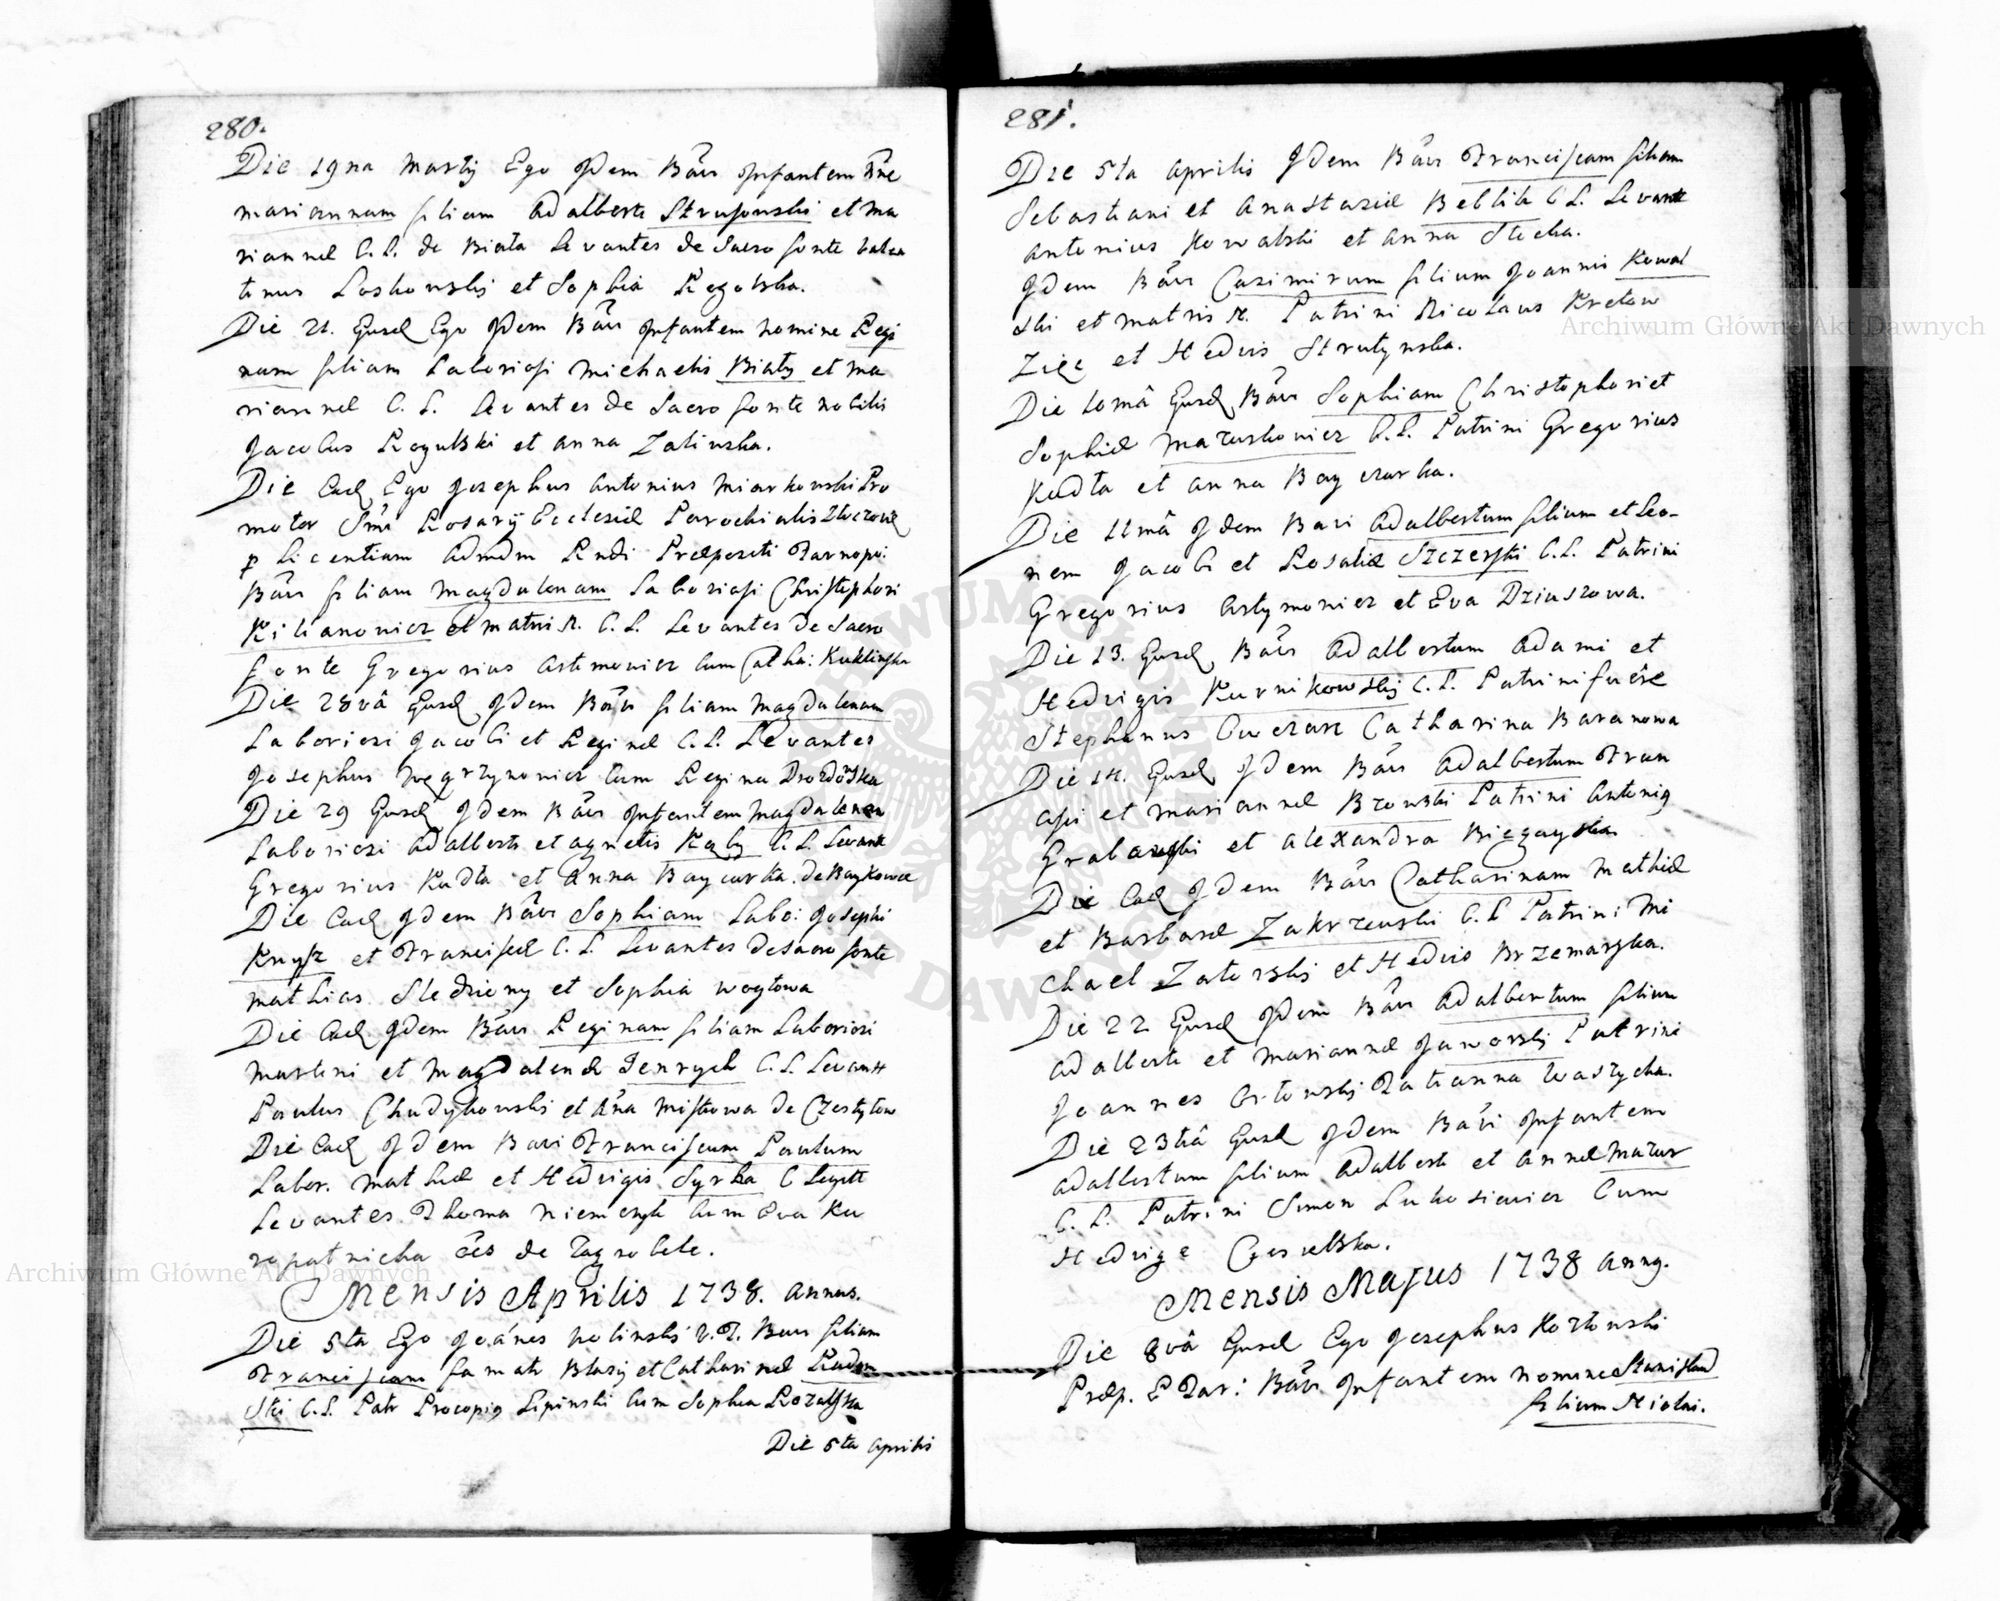 280.
Die 19na Martij Ego Idem Bãui Infantem Nñe
Mariannam filiam Adalberti Strusowski et Ma
riannæ C. L. de Biała Levantes de Sacro fonte Valen
tinus Loskowskij et Sophia Regolska.
Die 21. Eiusd Ego Idem Bãui Infantem nomine Regi
nam filiam Laboriosi Michaelis Biały et Ma
riannæ C. L. Levantes de Sacro fonte nobilis
Jacobus Rogulski et Anna Zalinska.
Die Ead Ego Josephus Antonius Miarkowski Pro
motor Smi Rosarij Ecclesiæ Parochialis
p licentiam Admdm Rndi Præpositi Tarnopoi:
Bãui filiam Magdalenam Laboriosi Christophori
Kilianowicz et matris N. C. L. Levantes de Sacro
fonte Gregorius Artimowicz cum Catha: Kuklinska
Die 28vâ Eiusd Idem Bãui filiam Magdalenam
Laboriosi Jacobi et Reginæ C. L. Levantes
Josephus Węgrzynowicz cum Regina Drozdowska
Die 29 Eiusd Idem Bãui Infantem Magdalenam
Laboriosi Adalberti et Agnetis Kąly C. L. Levant
Gregorius Kudła et Anna Baycurka de Baykowce
Die Ead Idem Bãui Sophiam Labo: Josephi
Knysz et Franciscæ C. L. Levantes de Sacro fonte
Mathias Sledziony et Sophia Woytowa
Die Ead Idem Bãui Reginam filiam Laboriosi
Martini et Magdalenæ Jenrych C. L. Levant
Paulus Chudykowski et Aña Miskowa de Czestyłow
Die Ead Idem Baui Franciscum Paulum
Labor. Mathiæ et Hedvigis Syrka C Legitt
Levantes Thoma Niemczyk cum Eva Ku
ropatnicka ões de Zagrobele.
Mensis Aprilis 1738. Annus.
Die 5ta Ego Joânes Wolinski V. T. Baui filiam
Franciscam Famati Blasij et Catharinæ Radom
ski C. L. Patr Procopig Lipinski cum Sophia Rozalska
Die 5ta Aprilis
281.
Die 5ta Aprilis Idem Bãui Franciscam filiam
Sebastiani et Anastasiæ Beblik C L. Levant
Antonius Kowalski et Anna Stecka.
Idem Bãui Casimirum filium Joannis Kowal
ski et matris N. Patrini Nicolaus Kretow
Zięc et Hedvis Strutynska.
Die 10mâ Eiusd Bãui Sophiam Christophori et
Sophiæ Maruszkowicz C. L. Patrini Gregorius
Kudła et Anna Bay czarka.
Die 11mâ Idem Baui Adalbertum filium et Leo-
nem Jacobi et Rosaliæ Szczerski C. L. Patrini
Gregorius Artymowicz et Eva Dziuszowa.
Die 13. Eiusd Bãui Adalbertum Adami et
Hedvigis Kurnikowskij C. L. Patrini fuêre
Stephanus Owczarz Catharina Baranowa
Die 14. Eiusd Idem Bãui Adalbertum Fran
cisi et Mariannæ Brzowski Patrini Antonig
Grabowski et Alexandra Biegayska
Die Ead Idem Bãui Catharinam Mathiæ
et Barbaræ Zakrzewski C. L Patrini Mi
chael Zatorskij et Hedvis Brzemayska.
Die 22 Eiusd Idem Bãui Adalbertum filium
Adalberti et Mariannæ Jaworskij Patrini
Joannes Orłowskij Tatianna Waszycka.
Die 23tiâ Eiusd Idem Bãui Infantem
Adalbertum filium Adalberti et Annæ Mazur
C. L. Patrini Simon Lukosiewicz Cum
Hedvige Cgesielska.
Mensis Majus 1738 Anng.
Die 8vâ Eiusd Ego Josephus Kozłowski
Præp. E Tar: Bãui Infantem nomine Stanislaū
filium Nicolai.
Archiwum Główne Akt Dawnych
Archiwum Główne Akt Dawnych
ARCHIWUM GŁÓWNE AKT DAWNYCH